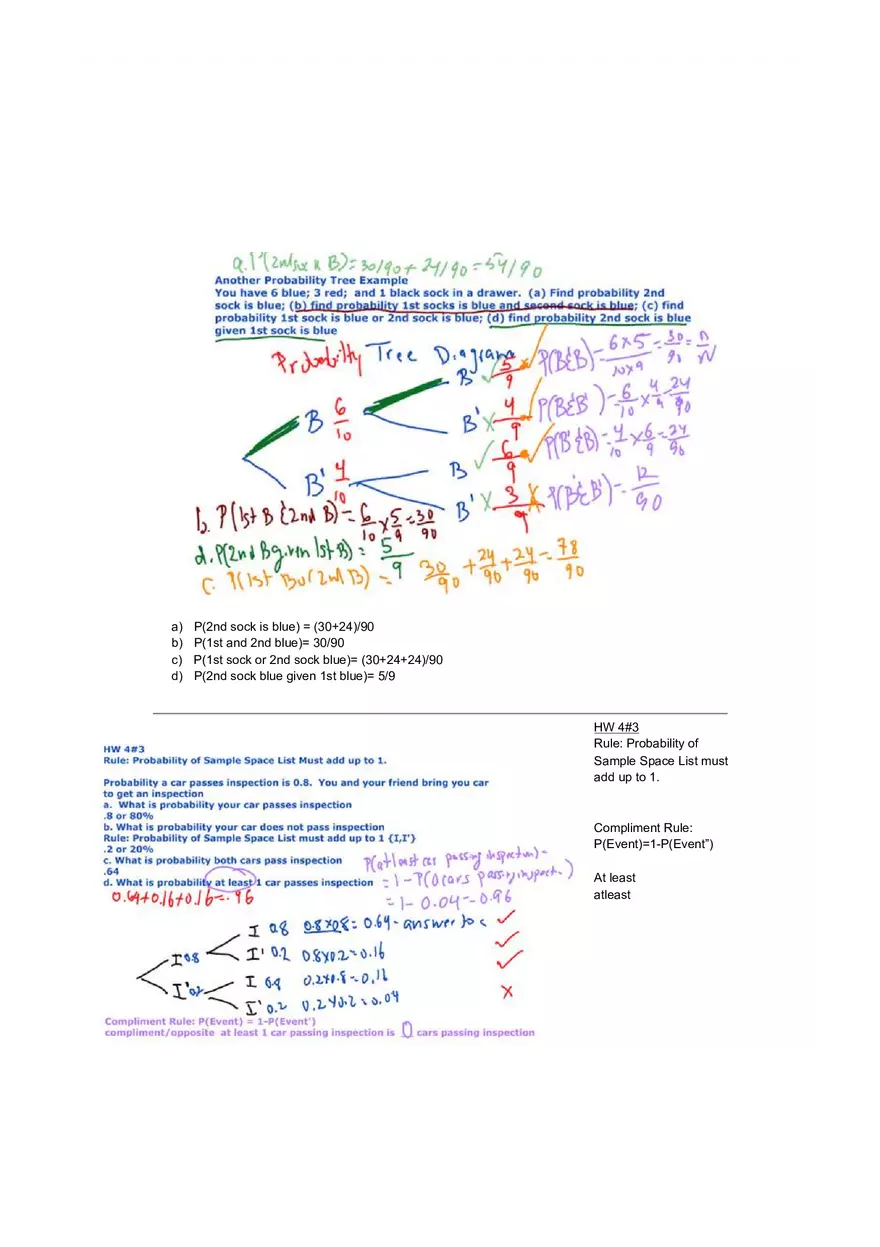 a. P(2nd sock is B) = 30/90 + 24/90 = 54/90
Another Probability Tree Example
You have 6 blue; 3 red;  and 1 black sock in a drawer.  (a) Find probability 2nd
sock is blue; (b) find probability 1st socks is blue and second sock is blue; (c) find
probability 1st sock is blue or 2nd sock is blue; (d) find probability 2nd sock is blue
given 1st sock is blue
Probability Tree Diagram
B 5/9 P(B&B) = 6x5/10x9 = 30/90 = n/N
B 6/10
B' 4/9 P(B&B') = 6/10 x 4/9 24/90
B 6/9 P(B'&B) = 4/10 x 6/9 = 24/90
B' 4/10
B' 3/9 P(B'&B') = 12/90
b. P(1st B & 2nd B) = 6/10 x 5/9 = 30/90
d. P(2nd B given 1st B) = 5/9
c. P(1st B or 2nd B) = 30/90 + 24/90 + 24/90 = 78/90
a) P(2nd sock is blue) = (30+24)/90
b) P(1st and 2nd blue)= 30/90
c) P(1st sock or 2nd sock blue)= (30+24+24)/90
d) P(2nd sock blue given 1st blue)= 5/9
HW 4#3
Rule: Probability of Sample Space List Must add up to 1.
Probability a car passes inspection is 0.8.  You and your friend bring you car
to get an inspection
a.  What is probability your car passes inspection
.8 or 80%
b. What is probability your car does not pass inspection
Rule: Probability of Sample Space List must add up to 1 {I,I'}
.2 or 20%
c. What is probability both cars pass inspection
.64
d. What is probability at least 1 car passes inspection
P(at least car passing inspection) =
= 1 - P(0 cars passing inspect.)
= 1 - 0.04 = 0.96
0.64+0.16+0.16=.96
I 0.8 0.8x0.8= 0.64- answer to c
I 0.8
I' 0.2 0.8x0.2=0.16
I' 0.2
I 0.8 0.2x0.8=0.16
I' 0.2 0.2x0.2=0.04
Compliment Rule: P(Event) = 1-P(Event')
compliment/opposite  at least 1 car passing inspection is 0 cars passing inspection
HW 4#3
Rule: Probability of
Sample Space List must
add up to 1.
Compliment Rule:
P(Event)=1-P(Event”)
At least
atleast